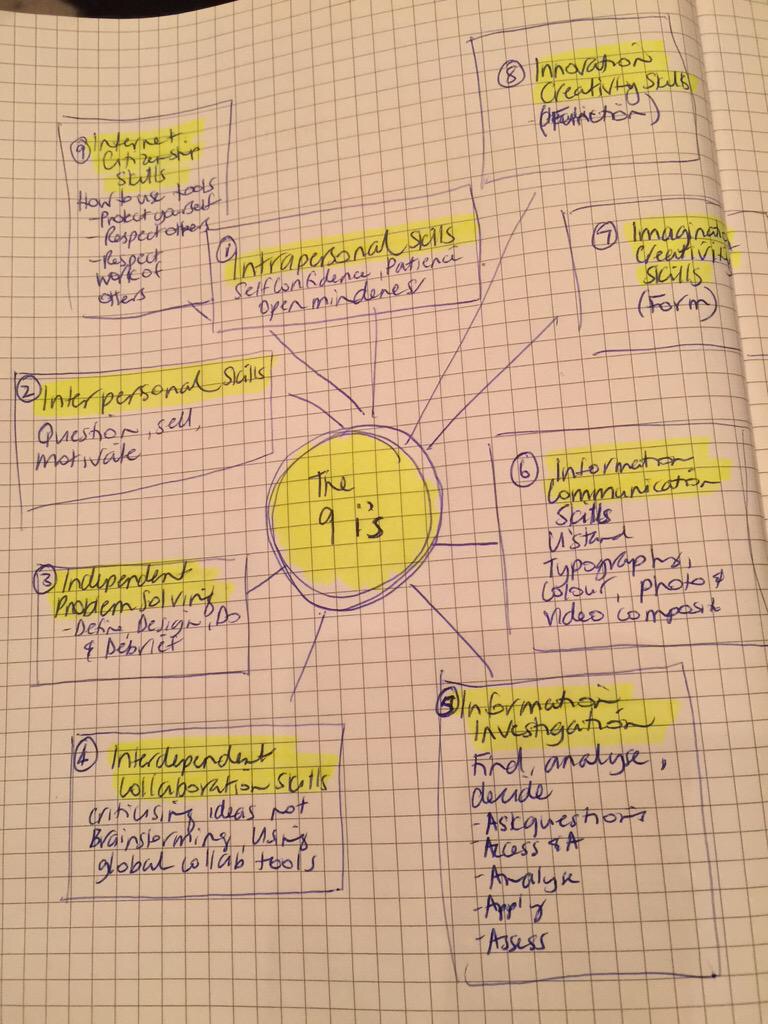 The
9 i's
① Intrapersonal Skills
Self Confidence, Patience
Open mindenes
② Interpersonal Skills
Question, sell,
motivate
③ Independent
Problem Solving
- Define Design, Do
& Debrief
④ Interdependent
Collaboration Skills
critiusing ideas not
Brainstorming, using
global collab tools
⑤ Information
Investigation
find, analyse,
decide
- Ask questions
- Access &A
- Analyse
- Apply
- Assess
⑥ Information
Communication
Skills
Typography,
Colour, photo &
video composit
⑦ Imaginat
Creativit
Skills
(Form)
⑧ Innovation
Creativity Skills
(Function)
⑨ Internet
Citizenship
Skills
How to use tools
- Protect yourself
- Respect others
- Respect
work of
others